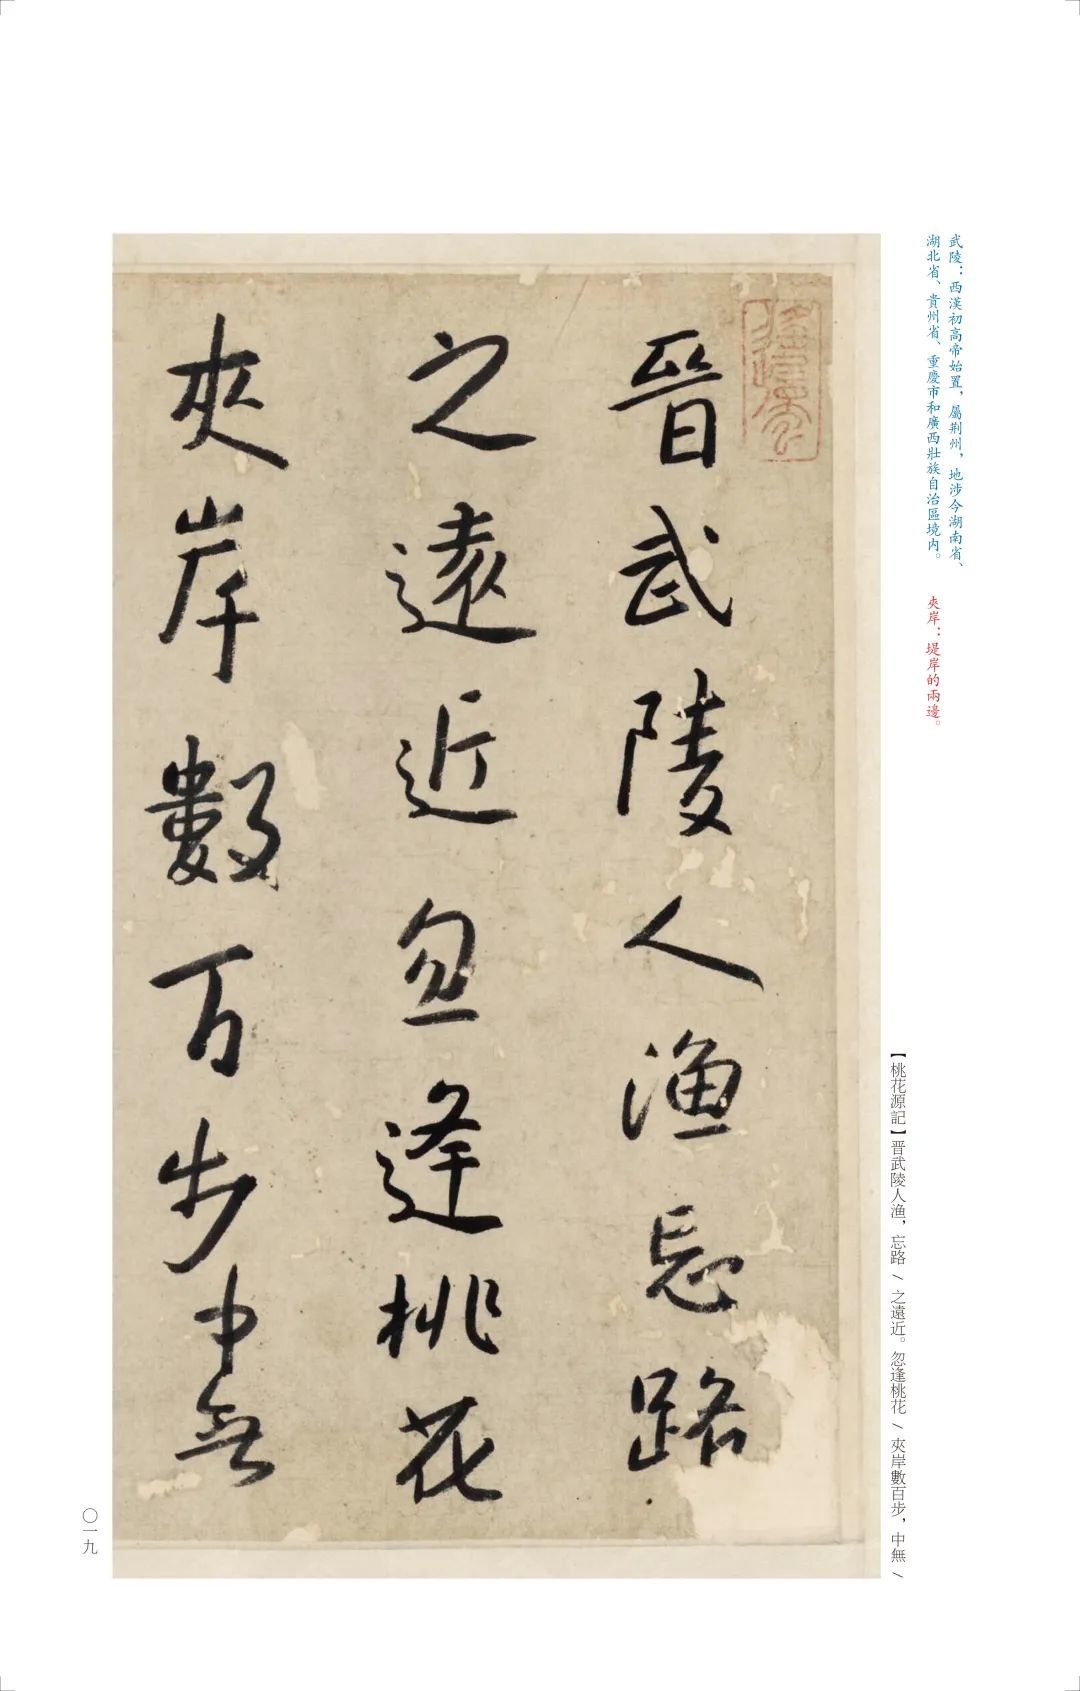 武陵：西漢初高帝始置，屬荆州，地涉今湖南省、
湖北省、貴州省、重慶市和廣西壯族自治區境内。
夾岸：堤岸的兩邊。
【桃花源記】晋武陵人漁，忘路／之遠近。忽逢桃花／夾岸數百步，中無／
晉武陵人漁忘路
之遠近忽逢桃花
夾岸數百步中無
〇一九